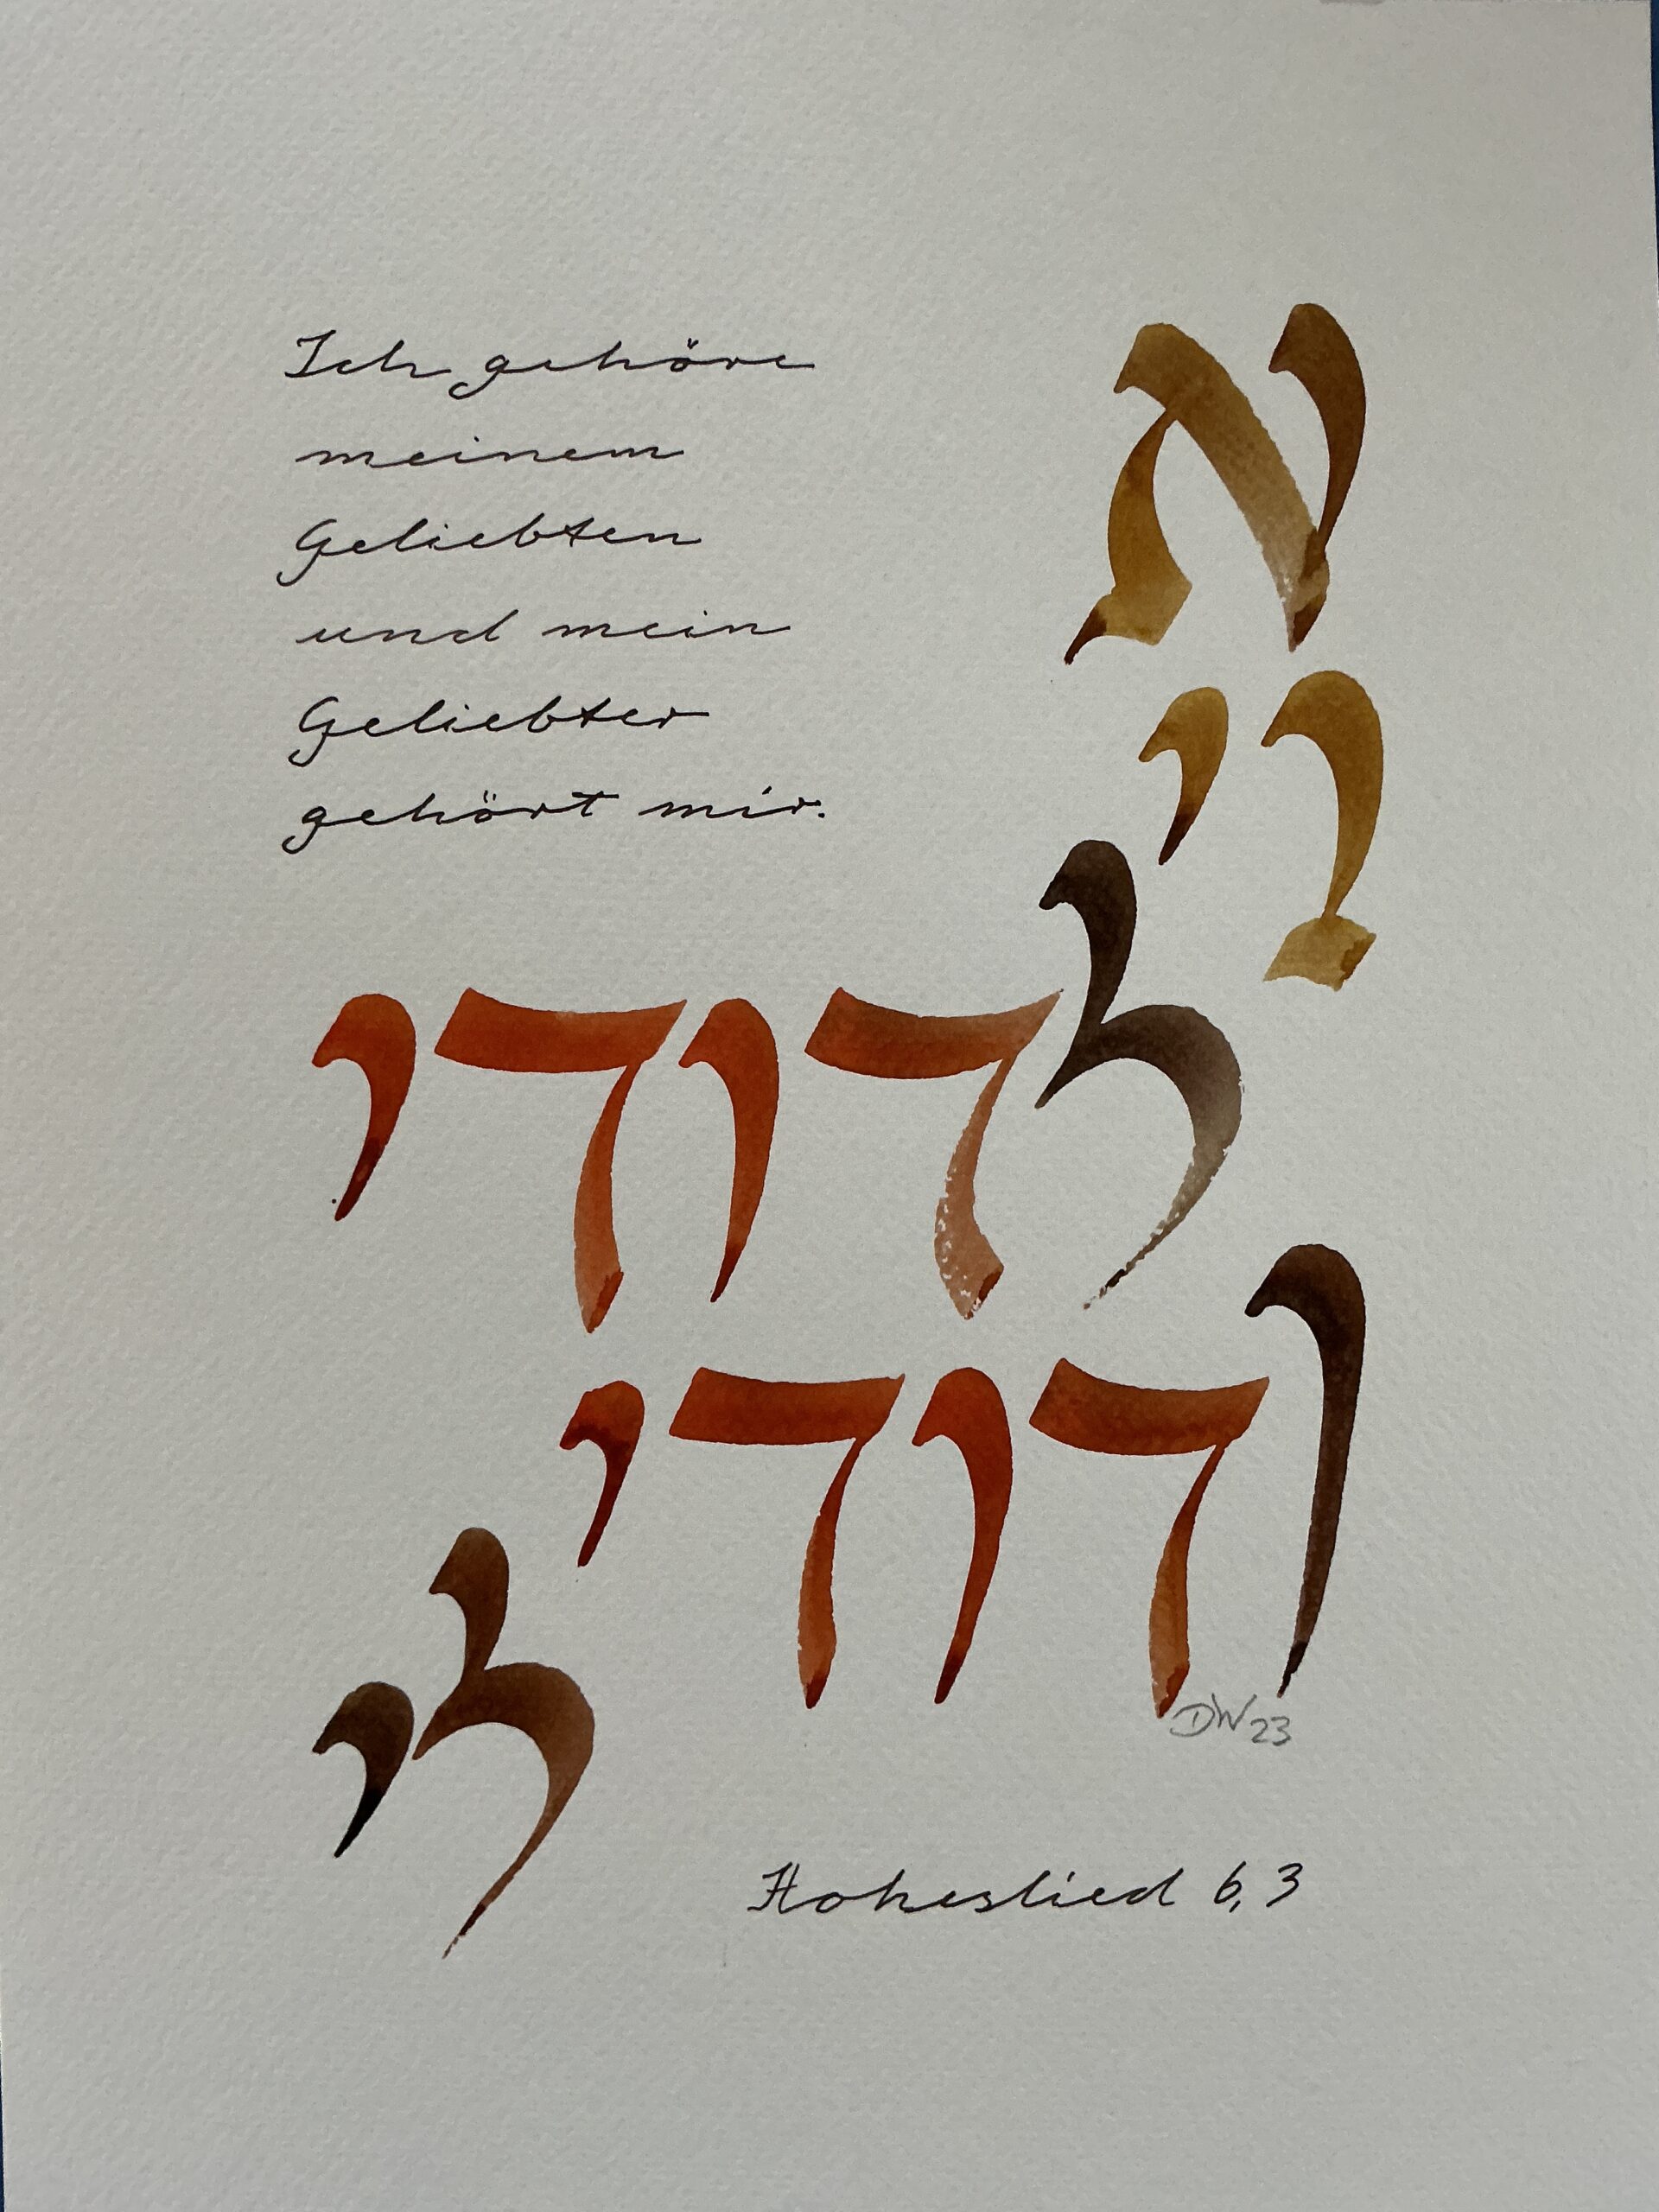 Ich gehöre
meinem
Geliebten
und mein
Geliebter
gehört mir.
א
ני
לדודי
ודודי
לי
DW 23
Hoheslied 6,3